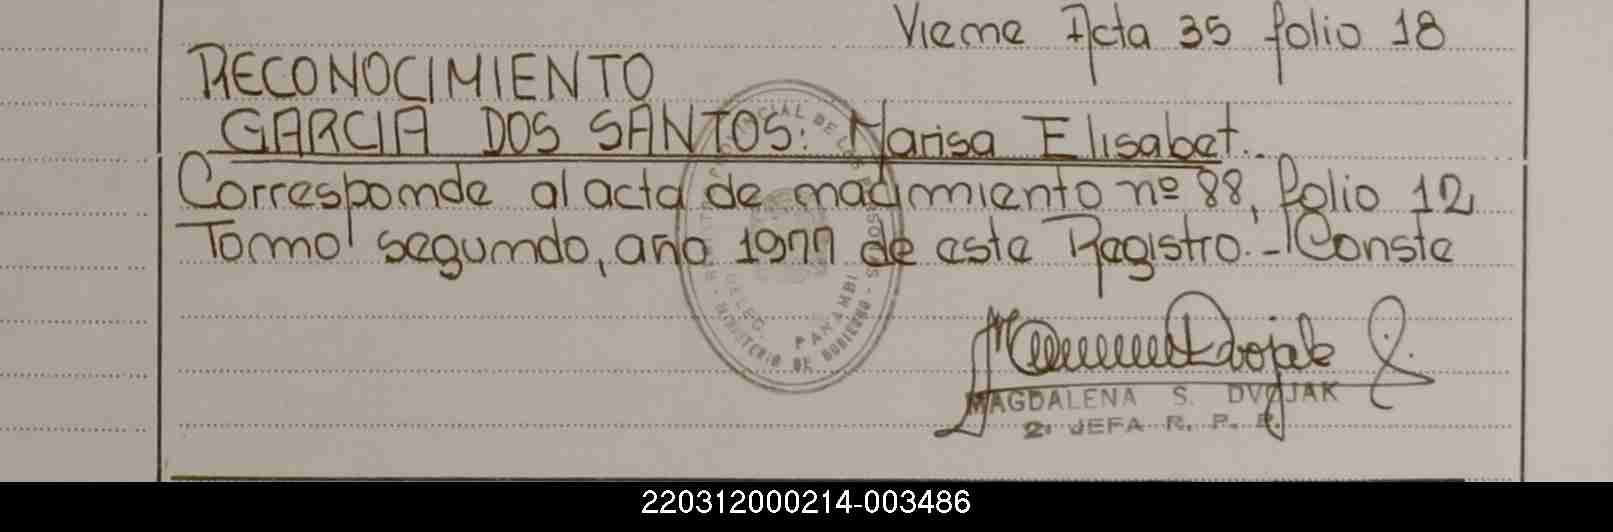 Viene Acta 35 folio 18
RECONOCIMIENTO
GARCIA DOS SANTOS: Marisa Elisabet.
Corresponde al acta de nacimiento nº 88, folio 12
Tomo segundo, año 1977 de este Registro.- Conste
DELEG. PANAMBI
MINISTERIO DE GOBIERNO
MAGDALENA S. DVOJAK
2º JEFA R. P. P.
220312000214-003486